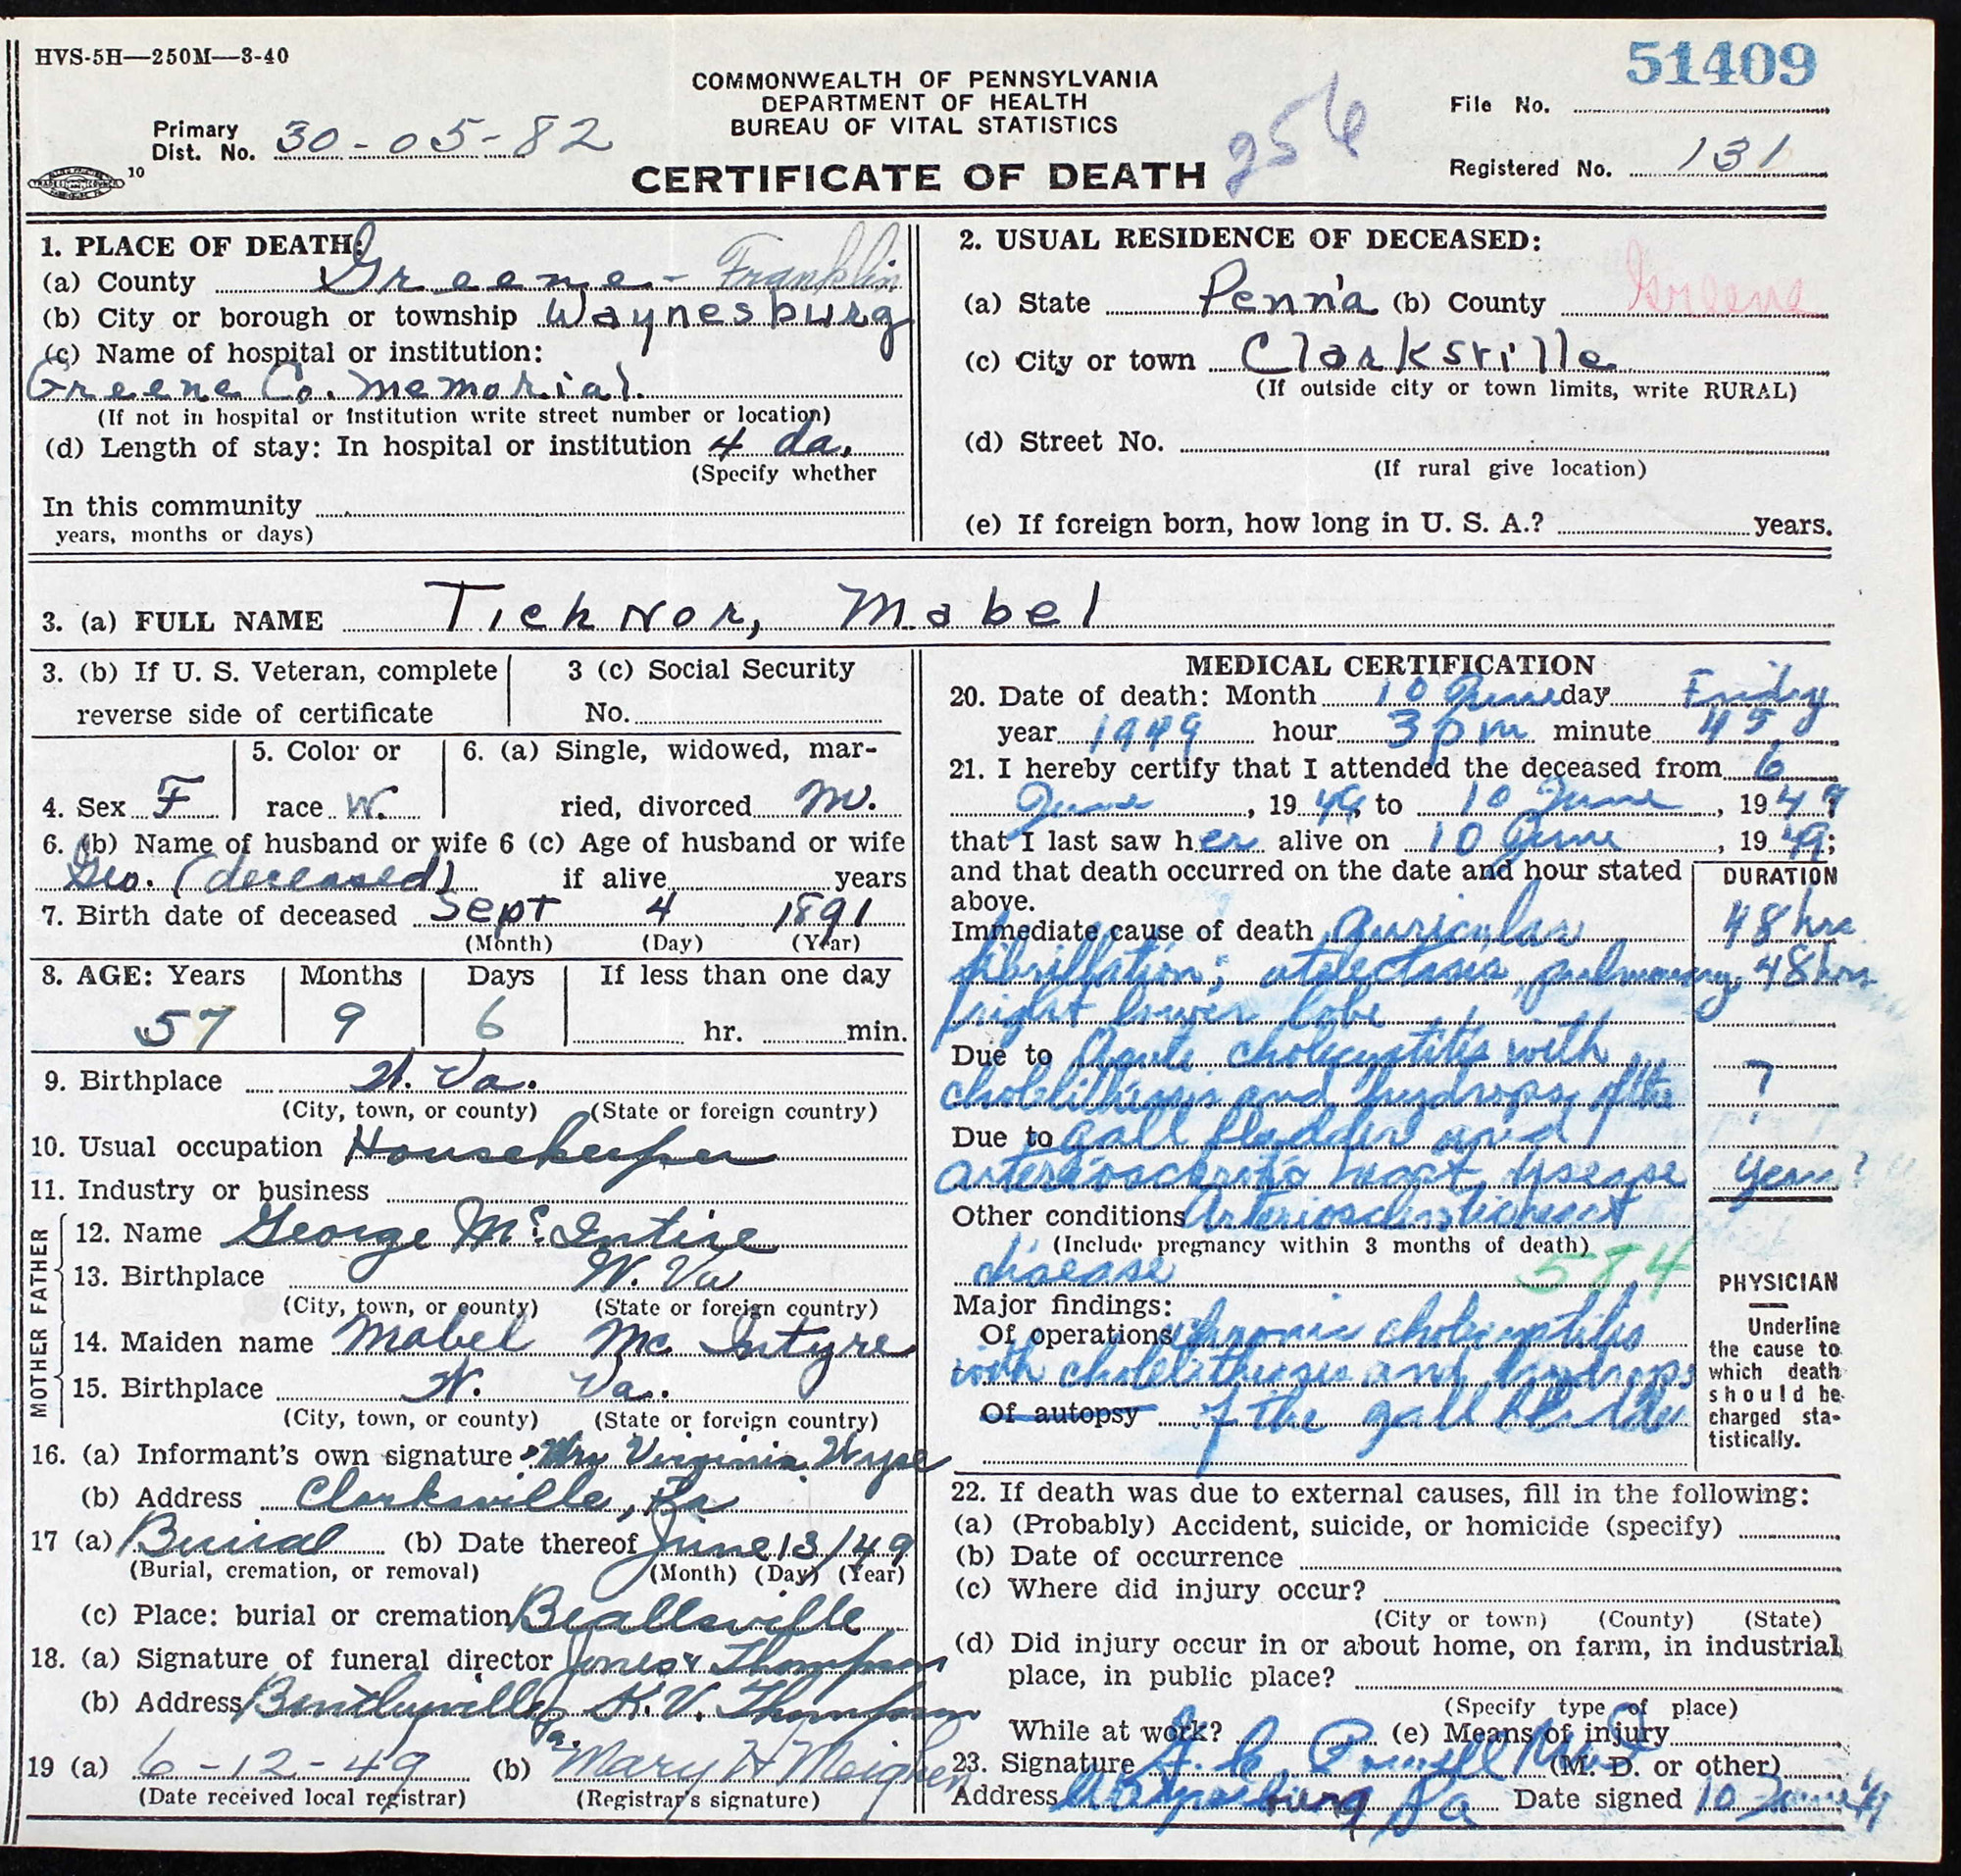 HVS-5H—250M—3-40
51409
COMMONWEALTH OF PENNSYLVANIA
DEPARTMENT OF HEALTH
BUREAU OF VITAL STATISTICS
256
File No.
Primary Dist. No. 30-05-82
10
CERTIFICATE OF DEATH
Registered No. 131
1. PLACE OF DEATH:
(a) County Greene - Franklin
(b) City or borough or township Waynesburg
(c) Name of hospital or institution:
Greene Co. Memorial
(If not in hospital or institution write street number or location)
(d) Length of stay: In hospital or institution 4 da.
(Specify whether
In this community
years, months or days)
2. USUAL RESIDENCE OF DECEASED:
(a) State Penn'a (b) County Greene
(c) City or town Clarksville
(If outside city or town limits, write RURAL)
(d) Street No.
(If rural give location)
(e) If foreign born, how long in U. S. A.? years.
3. (a) FULL NAME Ticknor, Mabel
3. (b) If U. S. Veteran, complete
reverse side of certificate
3 (c) Social Security
No.
4. Sex F
5. Color or
race W.
6. (a) Single, widowed, mar-
ried, divorced M.
6. (b) Name of husband or wife 6 (c) Age of husband or wife
Geo. (deceased) if alive years
7. Birth date of deceased Sept 4 1891
(Month) (Day) (Year)
8. AGE: Years Months Days If less than one day
57 9 6 hr. min.
9. Birthplace W. Va.
(City, town, or county) (State or foreign country)
10. Usual occupation Housekeeper
11. Industry or business
FATHER
12. Name George McIntire
13. Birthplace W. Va
(City, town, or county) (State or foreign country)
MOTHER
14. Maiden name Mabel McIntyre
15. Birthplace W. Va.
(City, town, or county) (State or foreign country)
16. (a) Informant's own signature Mrs Virginia Wyse
(b) Address Clarksville, Pa
17 (a) Burial (b) Date thereof June 13/49
(Burial, cremation, or removal) (Month) (Day) (Year)
(c) Place: burial or cremation Beallsville
18. (a) Signature of funeral director Jones & Thompson
(b) Address Bentleyville Pa. K.V. Thompson
19 (a) 6-12-49 (b) Mary H Meighen
(Date received local registrar) (Registrar's signature)
MEDICAL CERTIFICATION
20. Date of death: Month 10 June day Friday
year 1949 hour 3 pm minute 45
21. I hereby certify that I attended the deceased from 6
June, 1949 to 10 June, 1949
that I last saw her alive on 10 June, 1949;
and that death occurred on the date and hour stated
above.
DURATION
Immediate cause of death auricular 48 hrs
fibrillation; atelectasis pulmonary 48 hrs
right lower lobe
Due to Acute cholecystitis with ?
cholelithiasis and hydrops of the
Due to gall bladder and
arteriosclerotic heart disease years?
Other conditions Arteriosclerotic heart
(Include pregnancy within 3 months of death)
disease 584
Major findings:
Of operations chronic cholecystitis
with cholelithiasis and hydrops
Of autopsy of the gall bladder
PHYSICIAN
Underline
the cause to
which death
should be
charged sta-
tistically.
22. If death was due to external causes, fill in the following:
(a) (Probably) Accident, suicide, or homicide (specify)
(b) Date of occurrence
(c) Where did injury occur?
(City or town) (County) (State)
(d) Did injury occur in or about home, on farm, in industrial
place, in public place?
(Specify type of place)
While at work? (e) Means of injury
23. Signature (M. D. or other)
Address Waynesburg Pa Date signed 10 June 49